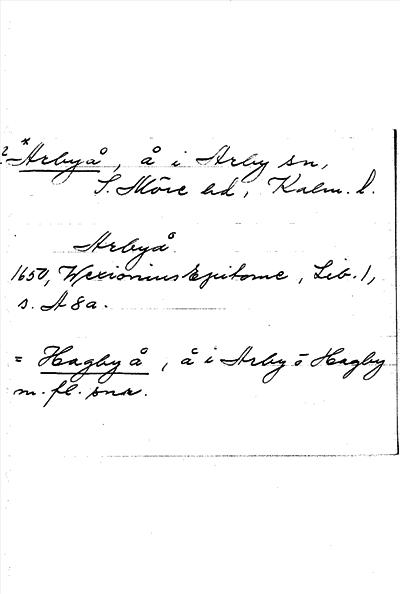 ? *Arbyå, å i Arby sn,
S. Möre hd, Kalm. l.
Arbyå
1650, Wexionius Epitome, Lib. 1,
s. A 8 a.
= Hagby å, å i Arby o Hagby
m. fl. snr.